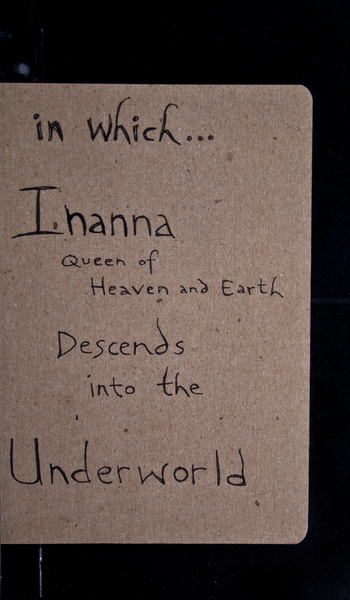 in which...
Inanna
Queen of
Heaven and Earth
Descends
into the
Underworld